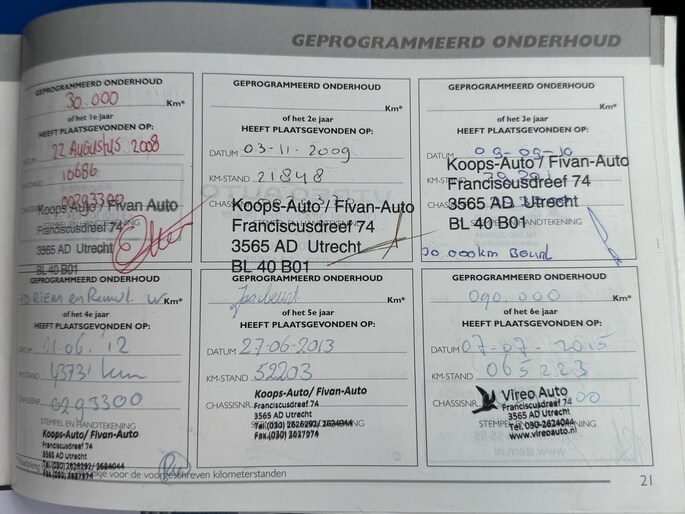 GEPROGRAMMEERD ONDERHOUD
GEPROGRAMMEERD ONDERHOUD
30.000 Km*
of het 1e jaar
HEEFT PLAATSGEVONDEN OP:
DATUM 22 AUGUSTUS 2008
KM-STAND 10686
00293300
Koops-Auto / Fivan Auto
Franciscusdreef 74
STEMPEL EN HANDTEKENING
3565 AD Utrecht
BL 40 B01
GEPROGRAMMEERD ONDERHOUD
Km*
of het 2e jaar
HEEFT PLAATSGEVONDEN OP:
DATUM 03-11-2009
KM-STAND 21848
CHASSISNR.
Koops-Auto / Fivan-Auto
Franciscusdreef 74
3565 AD Utrecht
BL 40 B01
GEPROGRAMMEERD ONDERHOUD
Km*
of het 3e jaar
HEEFT PLAATSGEVONDEN OP:
DATUM 09-09-10
Koops-Auto / Fivan-Auto
KM-STAND
Franciscusdreef 74
3565 AD Utrecht
BL 40 B01
30.000km Beurt
Riem en Km*
of het 4e jaar
HEEFT PLAATSGEVONDEN OP:
DATUM 11-06-12
KM-STAND 43731 km
CHASSISNR. 0293300
STEMPEL EN HANDTEKENING
Koops-Auto/ Fivan-Auto
Franciscusdreef 74
3565 AD Utrecht
Tel.(030) 2626292/ 2624044
Fax.(030) 2627974
Km*
of het 5e jaar
HEEFT PLAATSGEVONDEN OP:
DATUM 27-06-2013
KM-STAND 52203
CHASSISNR.
Koops-Auto/ Fivan-Auto
Franciscusdreef 74
3565 AD Utrecht
Tel.(030) 2626292/ 2624044
Fax.(030) 2627974
090.000 Km*
of het 6e jaar
HEEFT PLAATSGEVONDEN OP:
DATUM 07-07-2015
KM-STAND 065223
CHASSISNR.
Vireo Auto
Franciscusdreef 74
3565 AD Utrecht
Tel. 030-2624044
www.vireoauto.nl
voor de voorgeschreven kilometerstanden
21